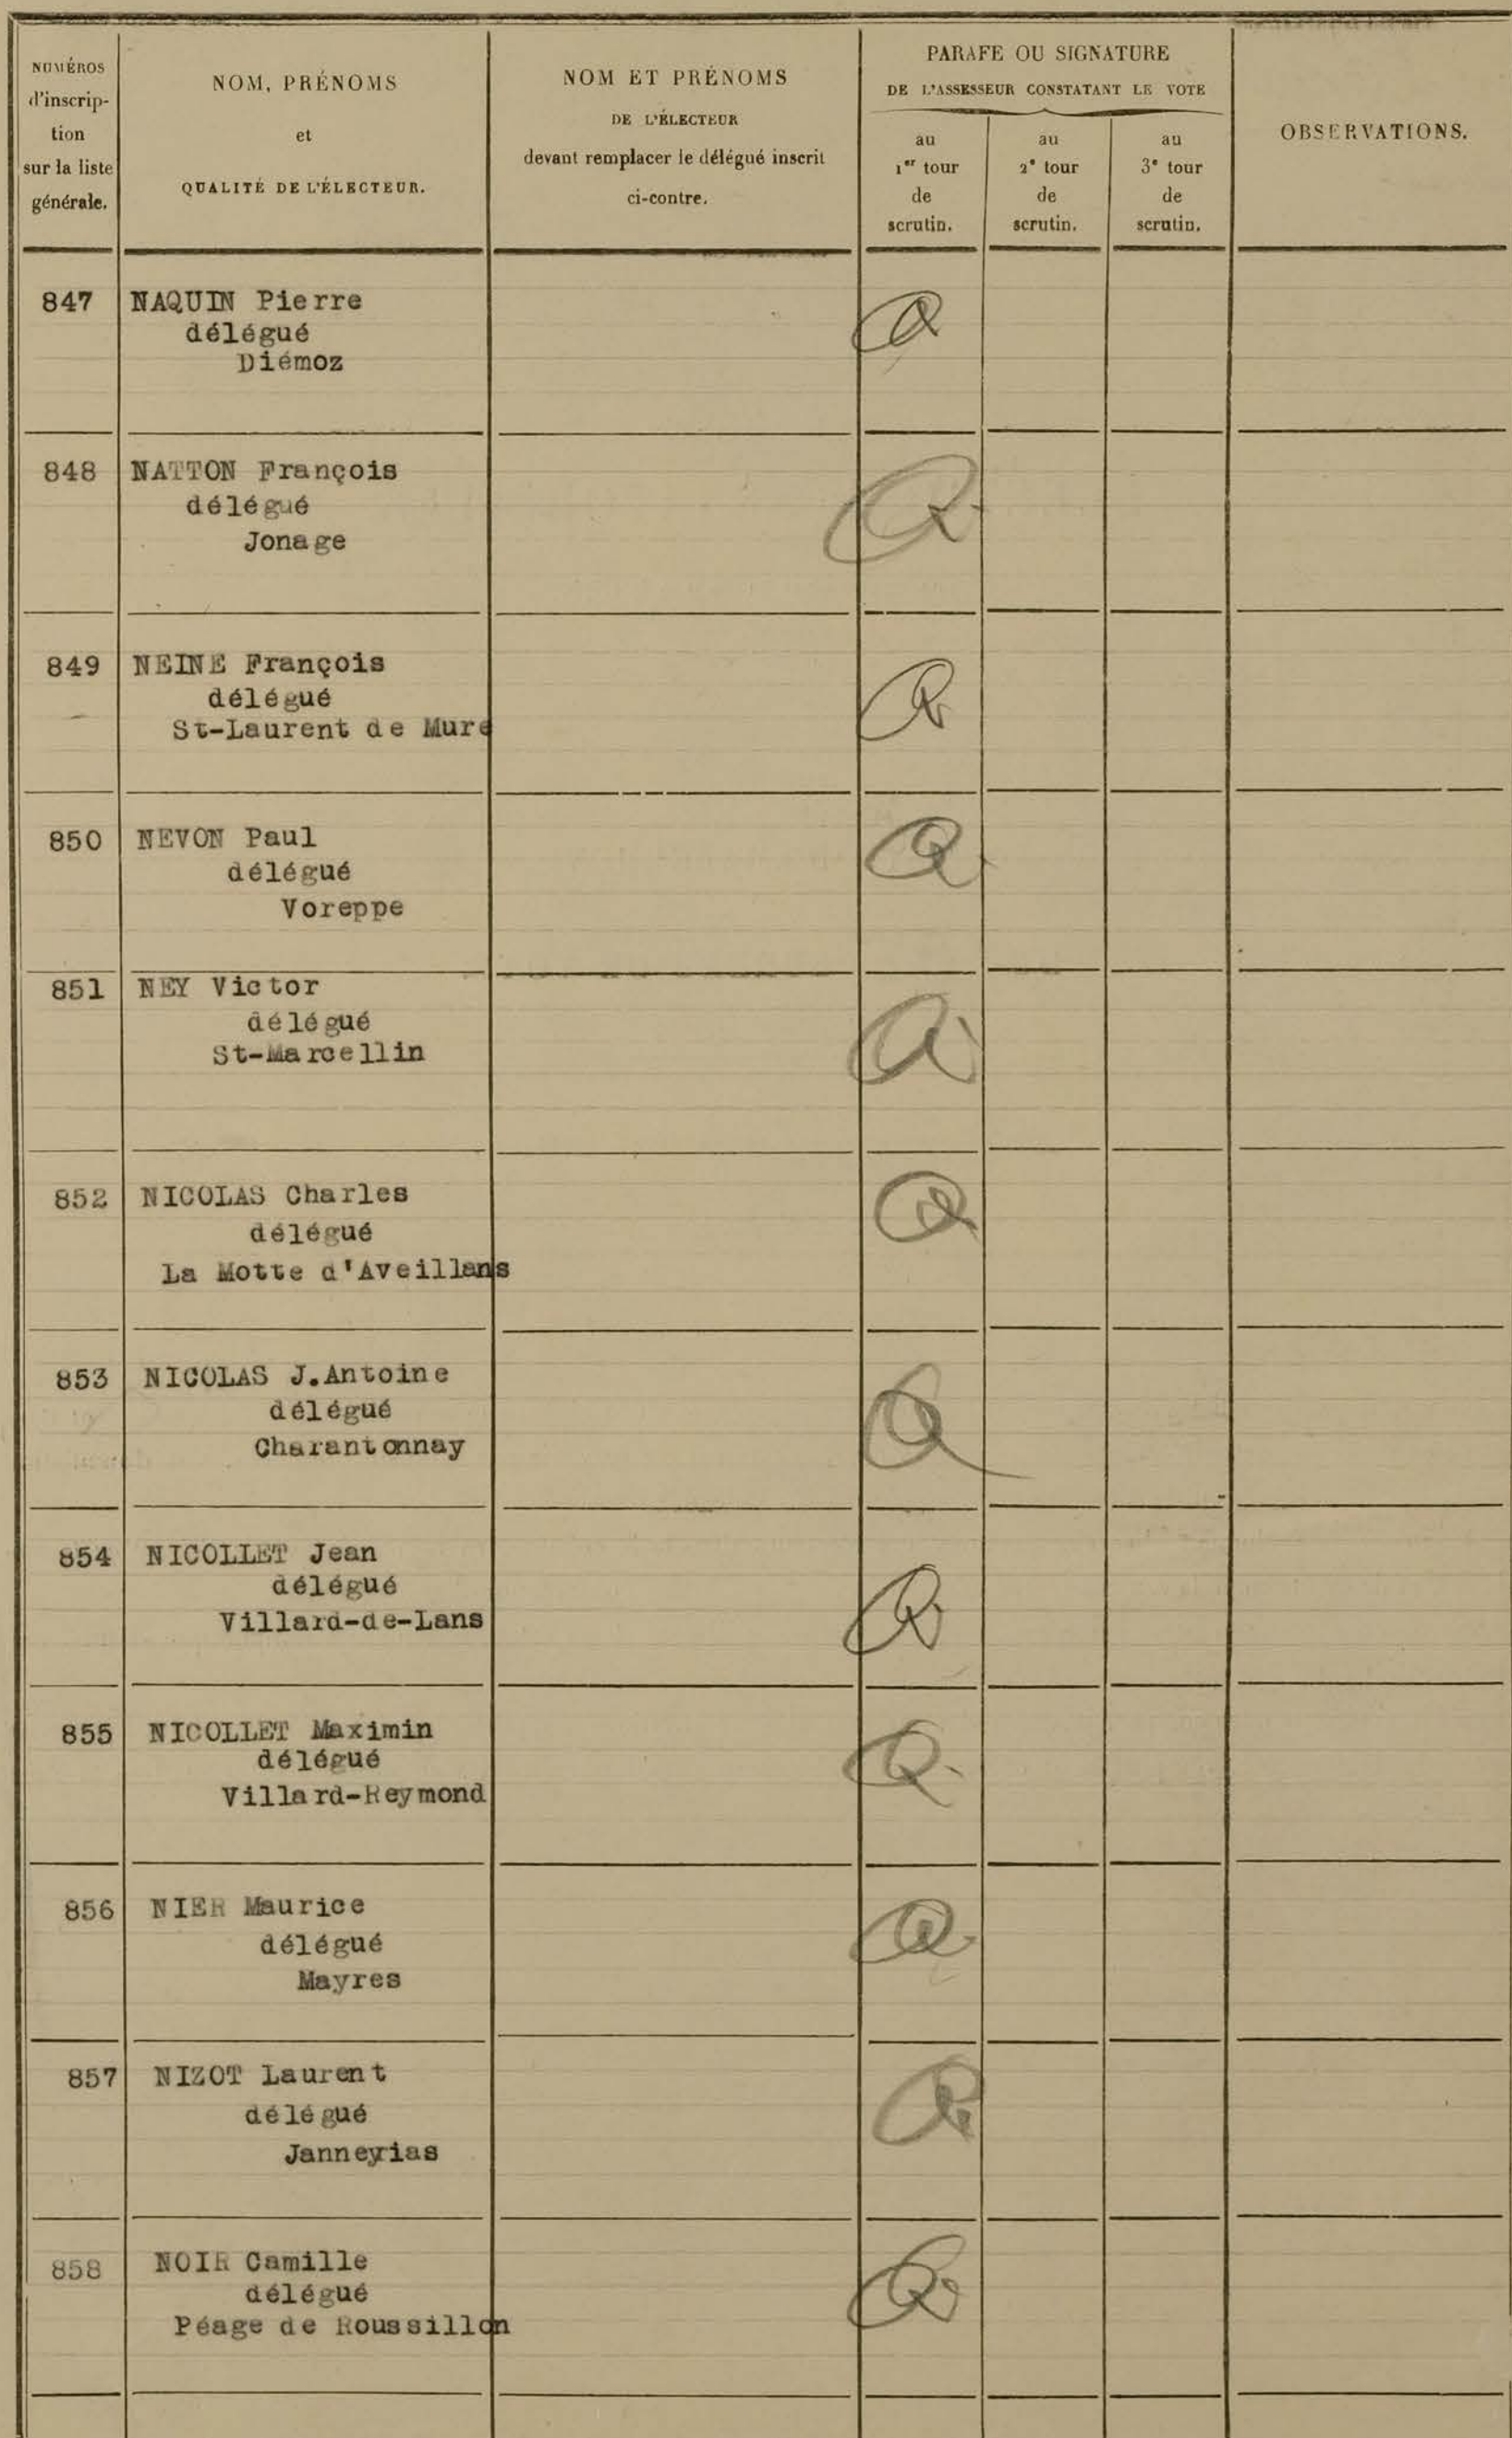 NUMÉROS
d'inscrip-
tion
sur la liste
générale.
NOM, PRÉNOMS
et
QUALITÉ DE L'ÉLECTEUR.
NOM ET PRÉNOMS
DE L'ÉLECTEUR
devant remplacer le délégué inscrit
ci-contre.
PARAFE OU SIGNATURE
DE L'ASSESSEUR CONSTATANT LE VOTE
au
1er tour
de
scrutin.
au
2e tour
de
scrutin.
au
3e tour
de
scrutin.
OBSERVATIONS.
847 NAQUIN Pierre
délégué
Diémoz
848 NATTON François
délégué
Jonage
849 NEINE François
délégué
St-Laurent de Mure
850 NEVON Paul
délégué
Voreppe
851 NEY Victor
délégué
St-Marcellin
852 NICOLAS Charles
délégué
La Motte d'Aveillans
853 NICOLAS J.Antoine
délégué
Charantonnay
854 NICOLLET Jean
délégué
Villard-de-Lans
855 NICOLLET Maximin
délégué
Villard-Reymond
856 NIER Maurice
délégué
Mayres
857 NIZOT Laurent
délégué
Janneyrias
858 NOIR Camille
délégué
Péage de Roussillon